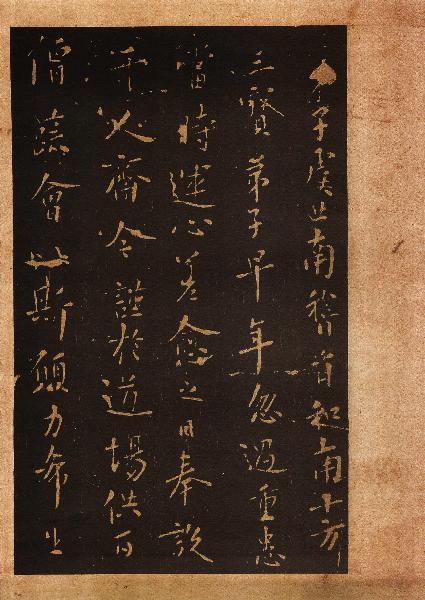 子虞世南稽首和南十方
三寶弟子早年忽遇重患
當時運心差愈之日奉設
千人齋今謹於道場供百
僧蔬會以斯願力希生